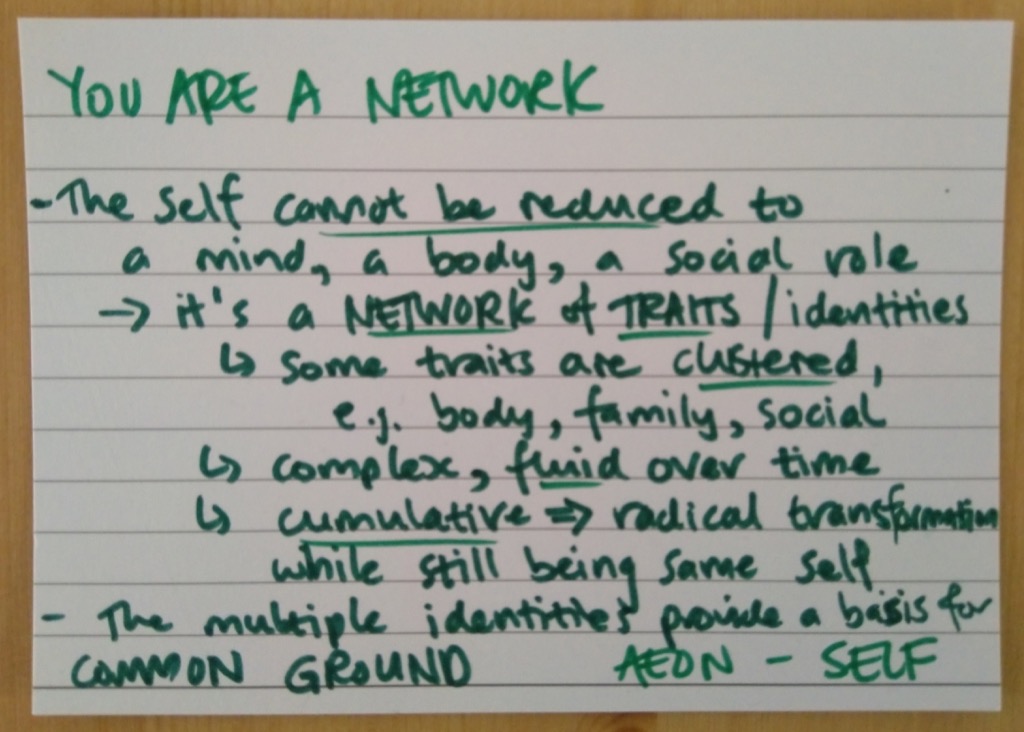 YOU ARE A NETWORK
- The self cannot be reduced to
a mind, a body, a social role
→ it's a NETWORK of TRAITS / identities
↳ some traits are clustered,
e.g. body, family, social
↳ complex, fluid over time
↳ cumulative ⇒ radical transformation
while still being same self
- The multiple identities provide a basis for
COMMON GROUND AEON - SELF